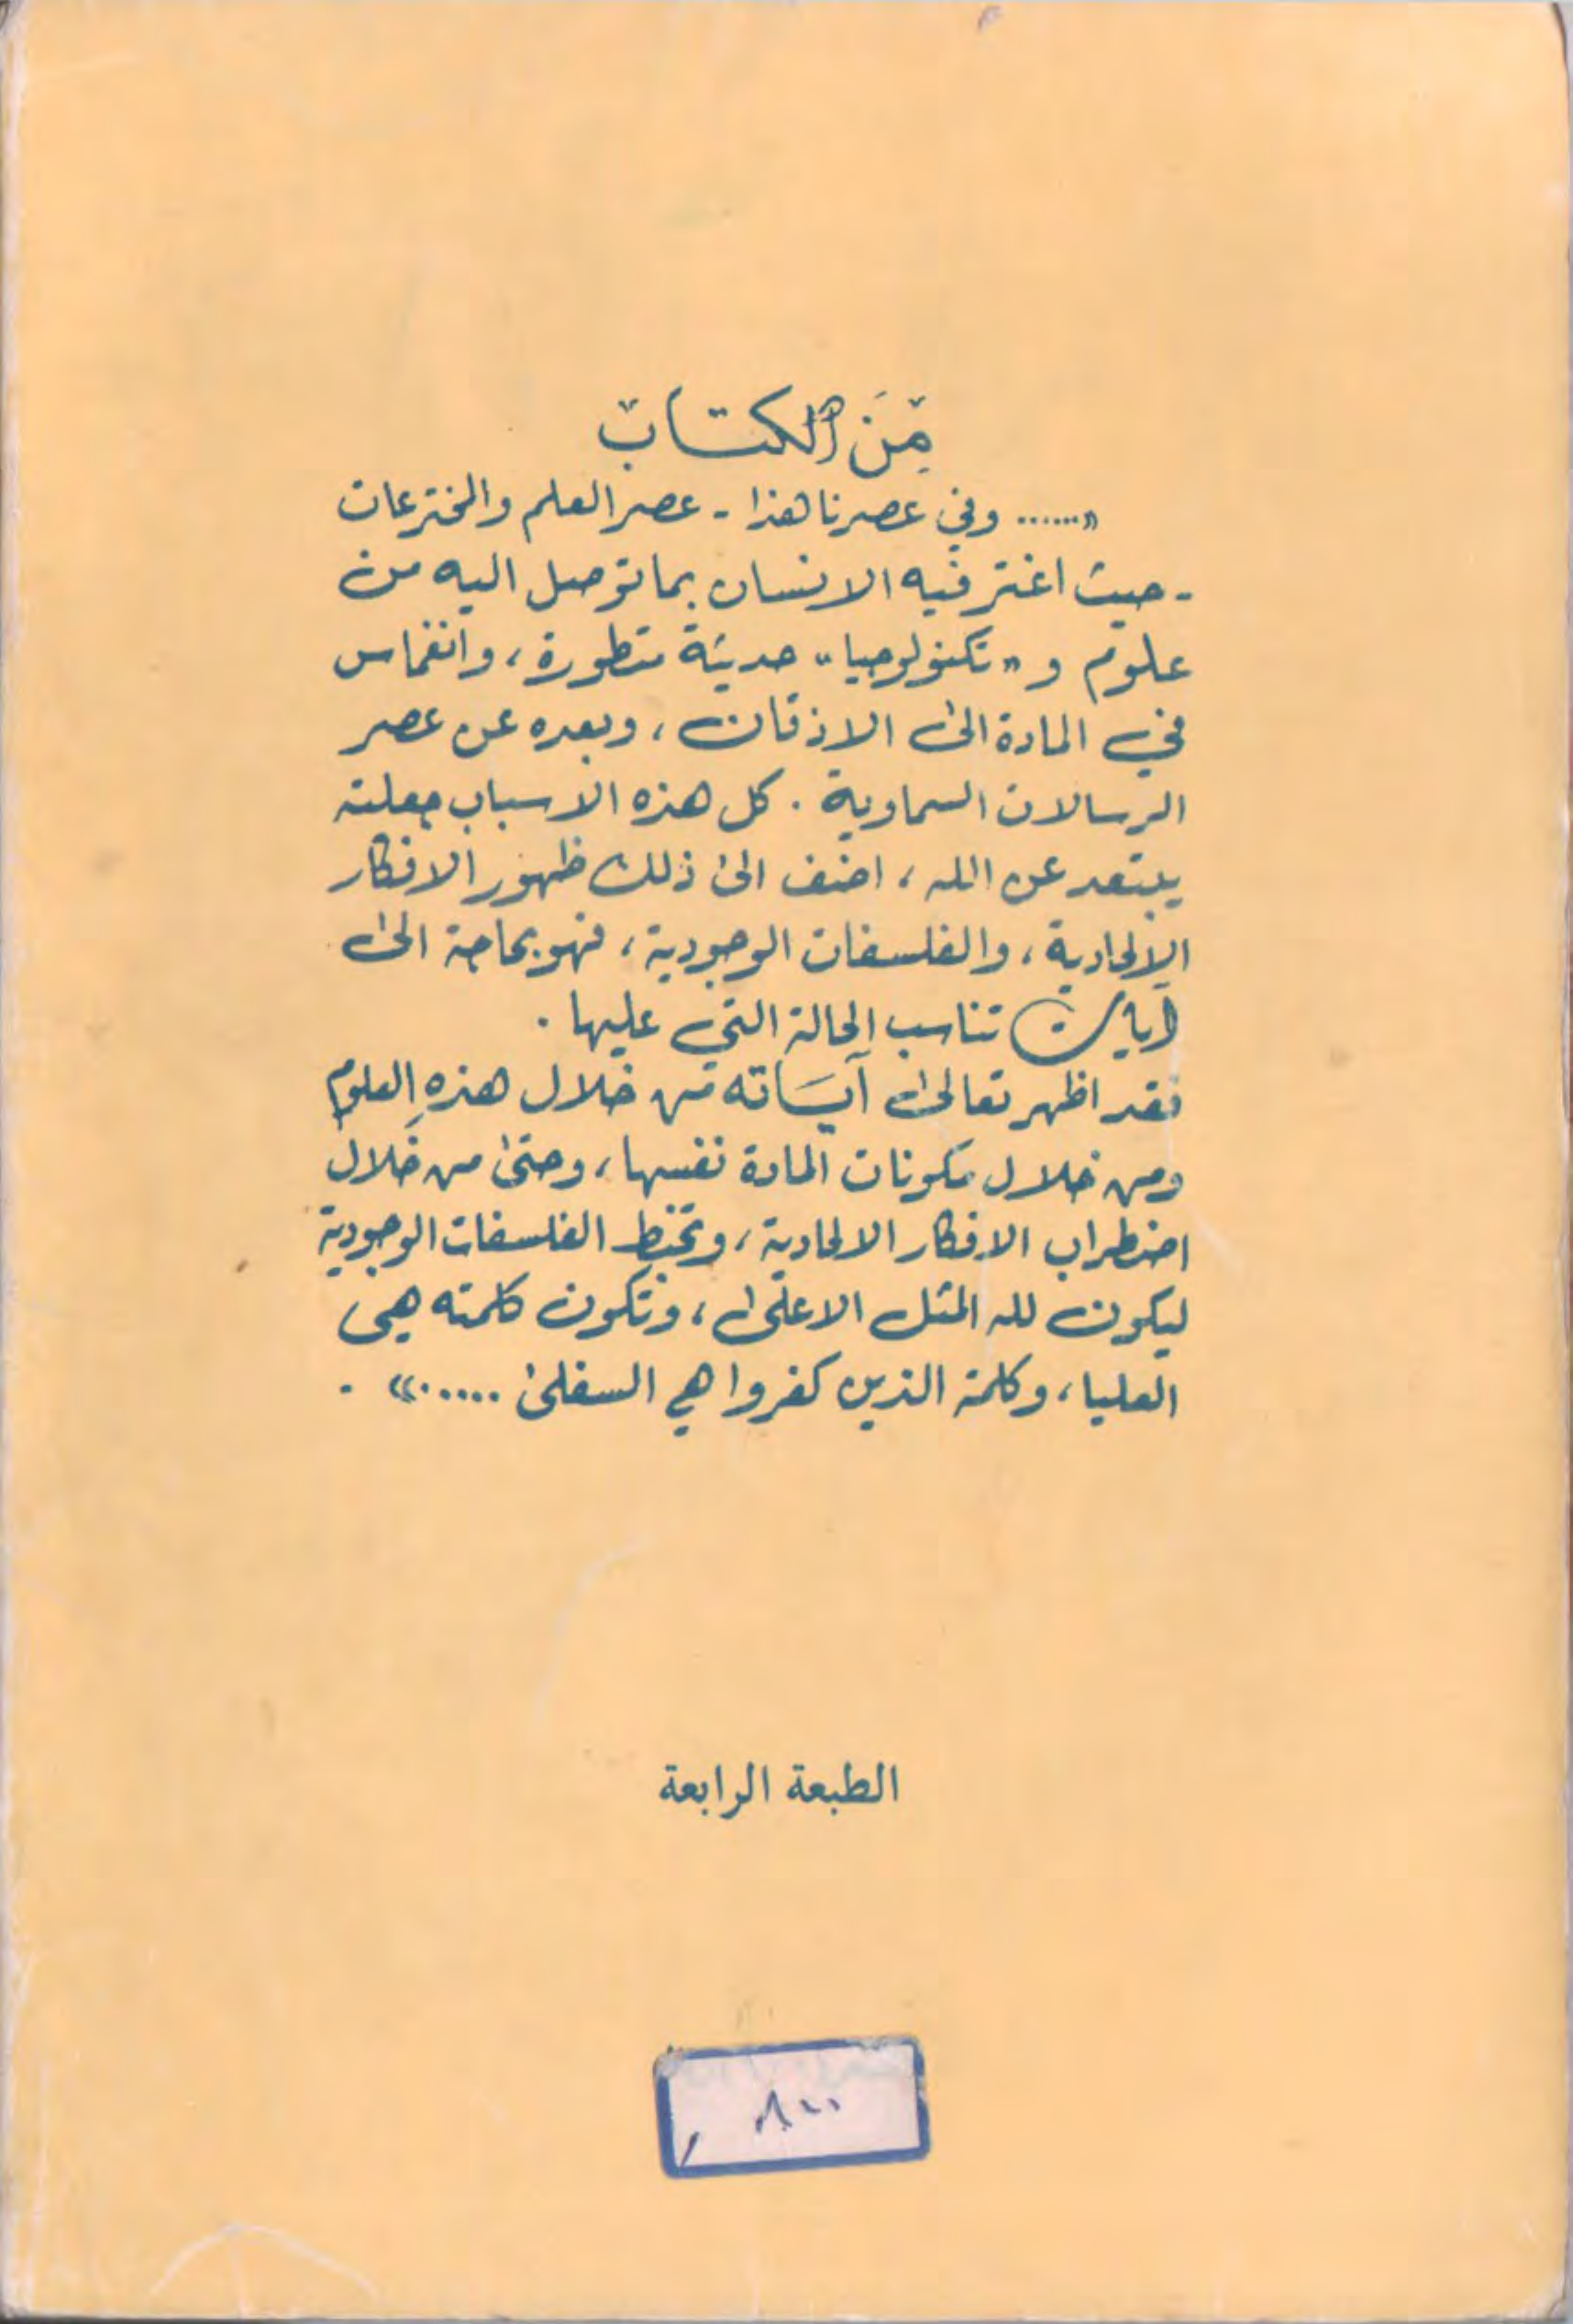 مِنَ الكتاب
«...... وفي عصرنا هذا - عصر العلم والمخترعات
- حيث اغتر فيه الانسان بما توصل اليه من
علوم و «تكنولوجيا» حديثة متطورة، وانغماس
في المادة الى الاذقان، وبعده عن عصر
الرسالات السماوية. كل هذه الاسباب جعلته
يبتعد عن الله، اضف الى ذلك ظهور الافكار
الالحادية، والفلسفات الوجودية، فهو بحاجة الى
آيات تناسب الحالة التي عليها.
فقد اظهر تعالى آياته من خلال هذه العلوم
ومن خلال مكونات المادة نفسها، وحتى من خلال
اضطراب الافكار الالحادية، وتخبط الفلسفات الوجودية
ليكون لله المثل الاعلى، وتكون كلمته هي
العليا، وكلمة الذين كفروا هي السفلى .....».
الطبعة الرابعة